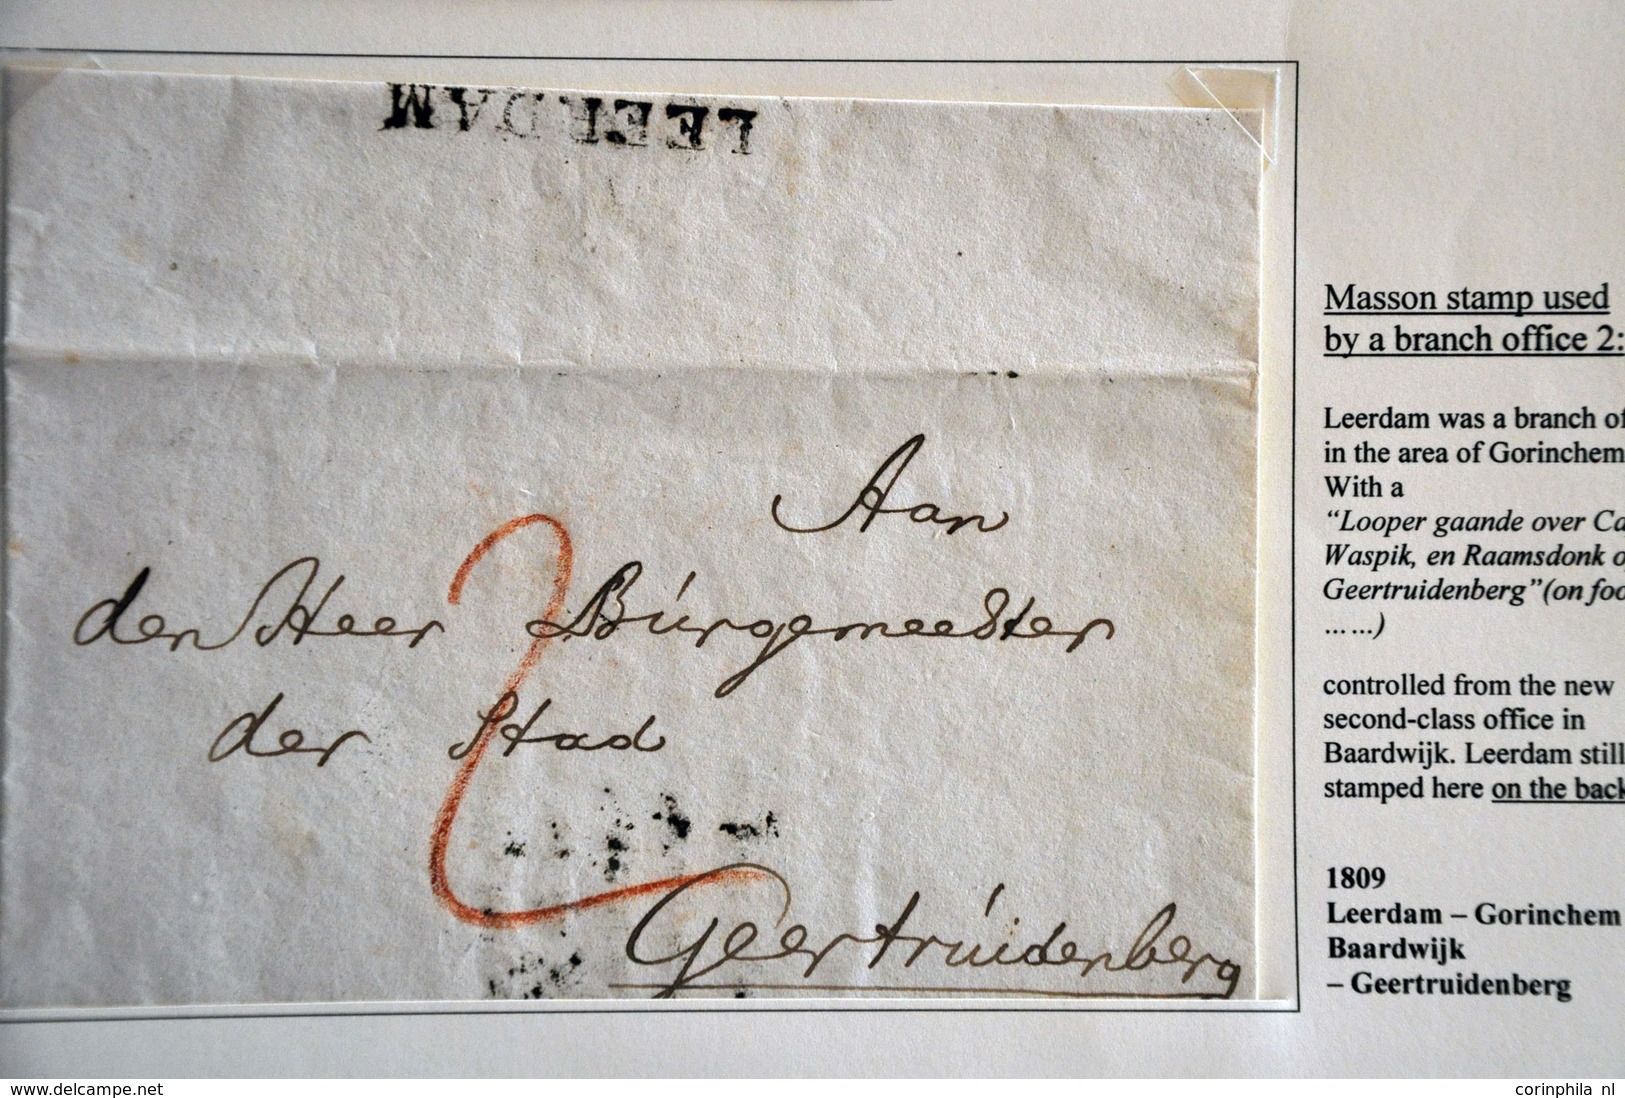 LEERDAM
Aan
den Heer Búrgemeester
der Stad
Geertrúidenberg
Masson stamp used
by a branch office 2:
Leerdam was a branch of
in the area of Gorinchem
With a
“Looper gaande over Ca
Waspik, en Raamsdonk o
Geertruidenberg”(on foo
... ...)
controlled from the new
second-class office in
Baardwijk. Leerdam still
stamped here on the back
1809
Leerdam – Gorinchem
Baardwijk
– Geertruidenberg
www.delcampe.net
corinphila nl